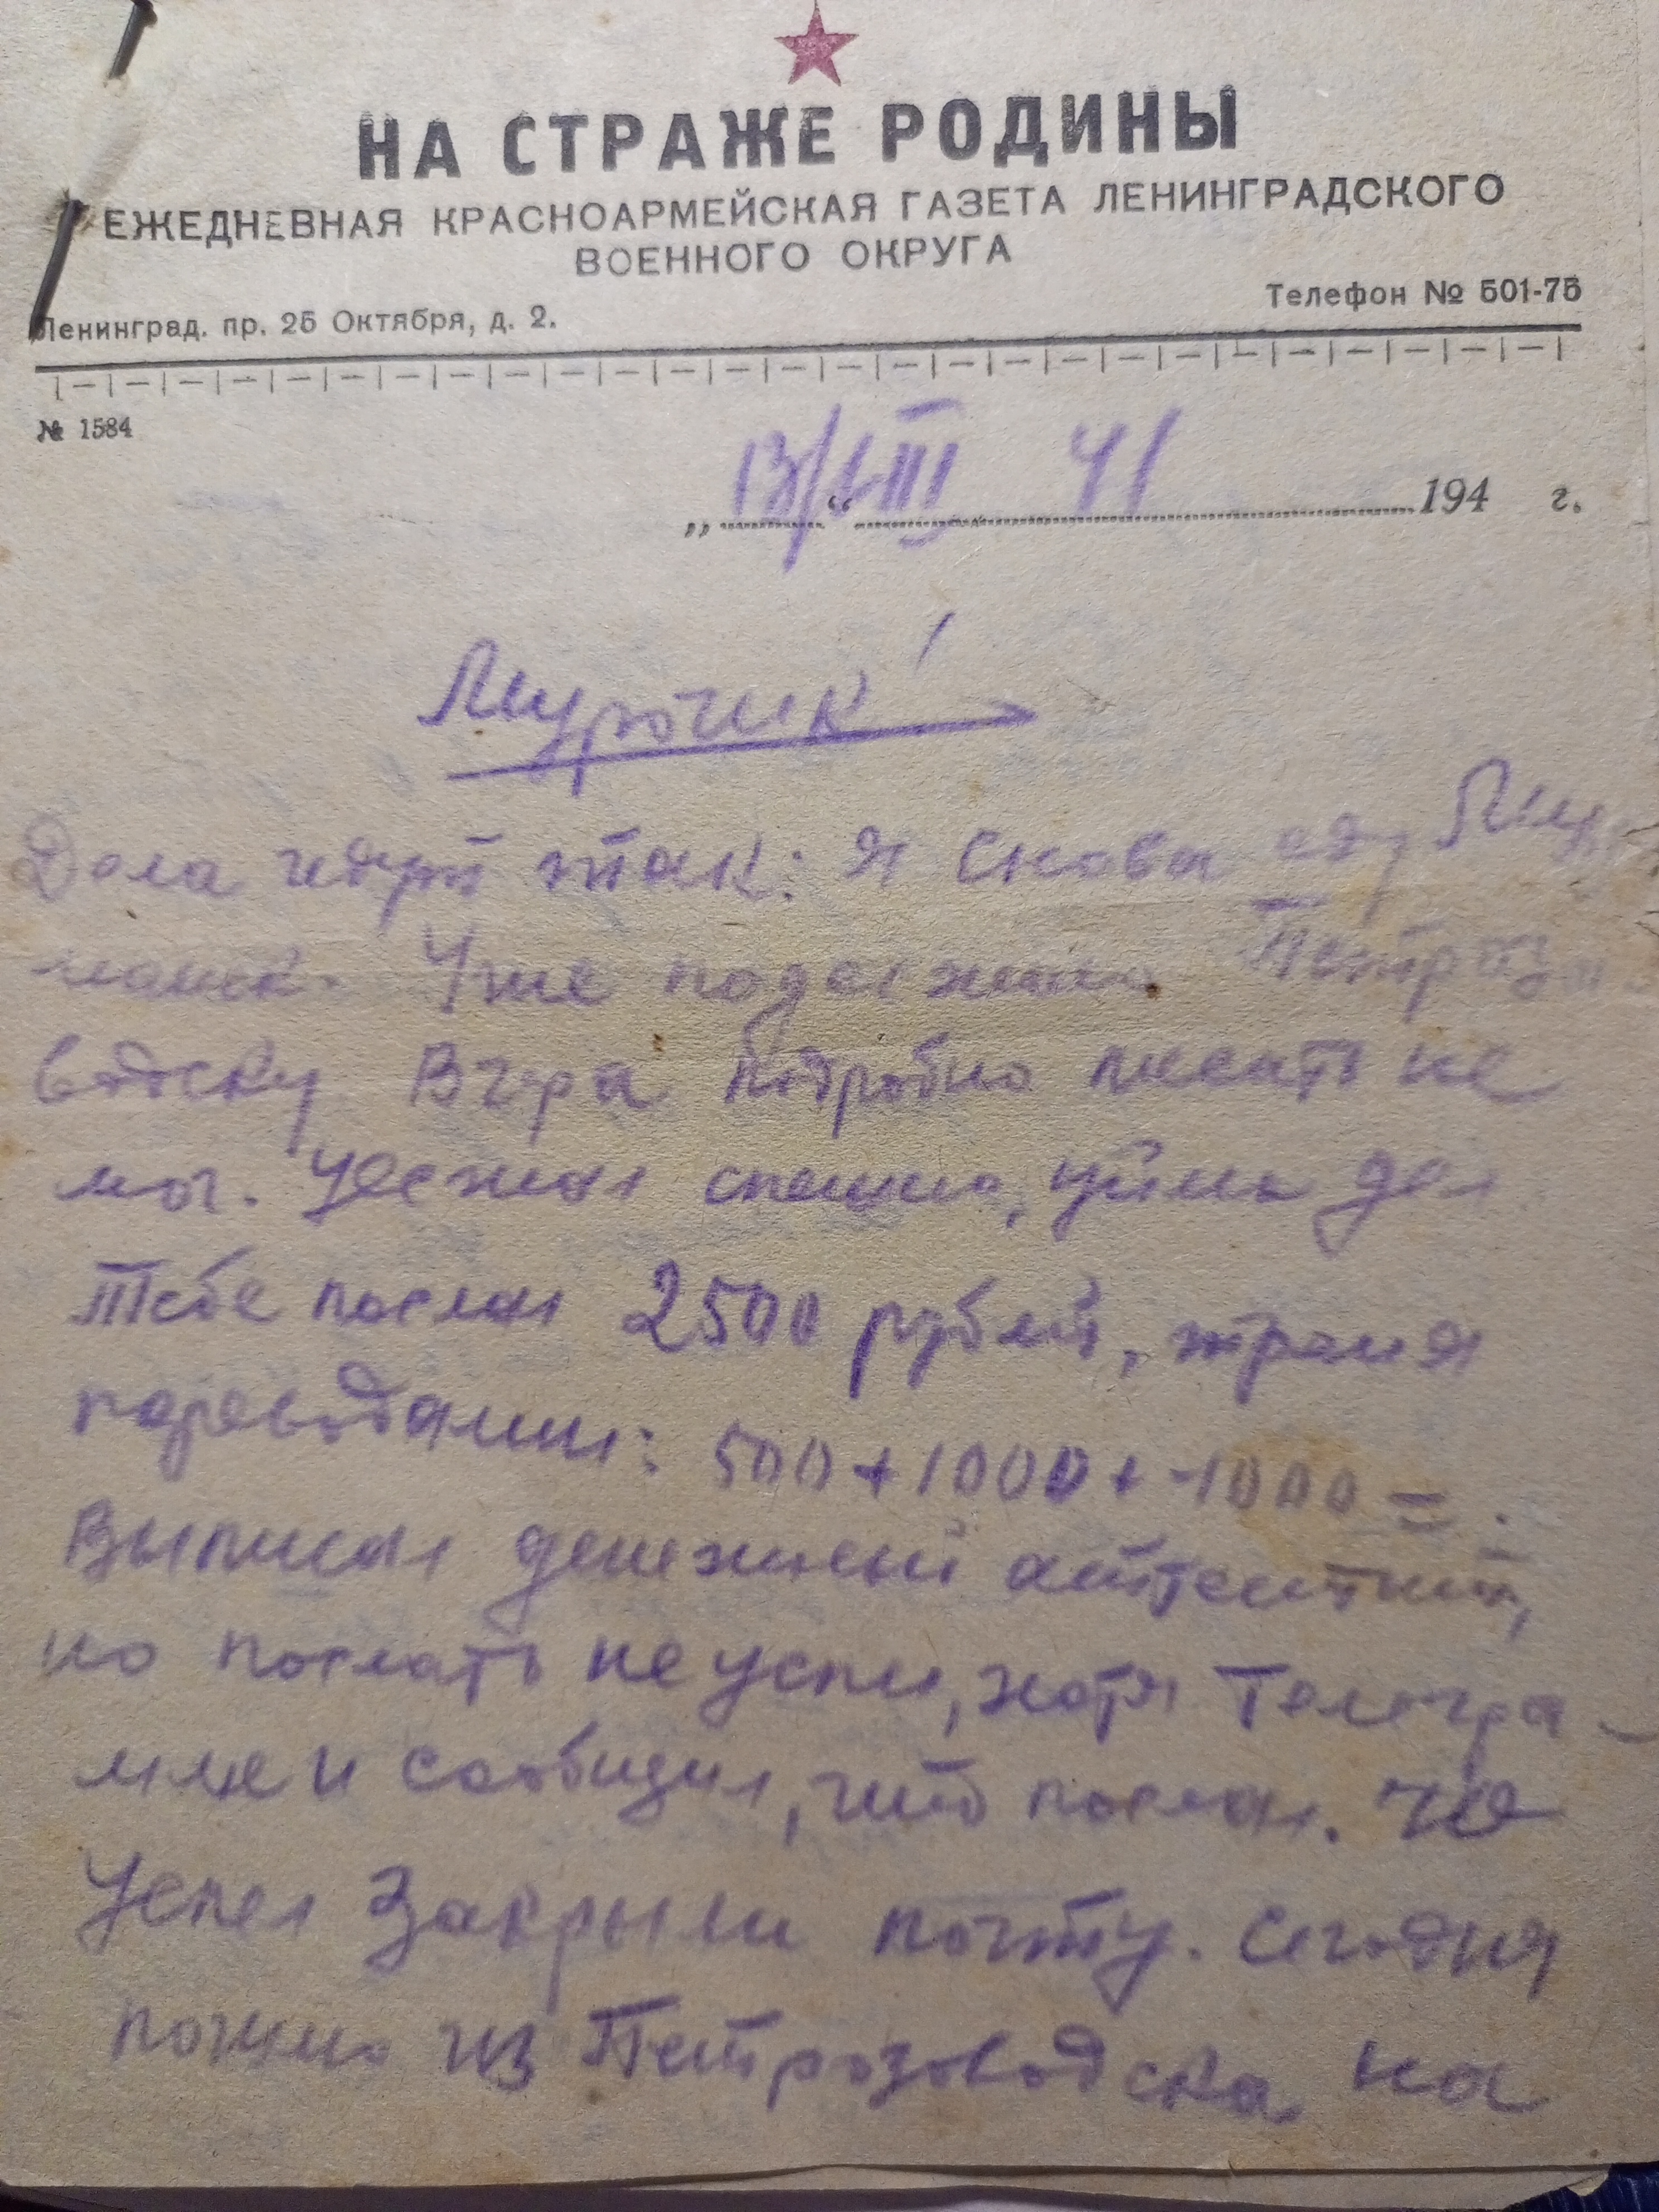 НА СТРАЖЕ РОДИНЫ
ЕЖЕДНЕВНАЯ КРАСНОАРМЕЙСКАЯ ГАЗЕТА ЛЕНИНГРАДСКОГО
ВОЕННОГО ОКРУГА
Ленинград. пр. 25 Октября, д. 2.
Телефон № 501-75
№ 1584
13/VIII 41
„ “ 194 г.
Мурочик!
Дела идут так: я снова еду Мур
манск. Уже подъезжаю Петроза
водску Вчера подробно писать не
мог. Уезжал спешно, уйма дел
Тебе послал 2500 рублей, тремя
переводами: 500 + 1000 + 1000 = .
Выписал денежный аттестат,
но послать не успел, хотя Телегра-
мме и сообщил, что послал. Не
успел Закрыли почту. Сегодня
пошлю из Петрозаводска на